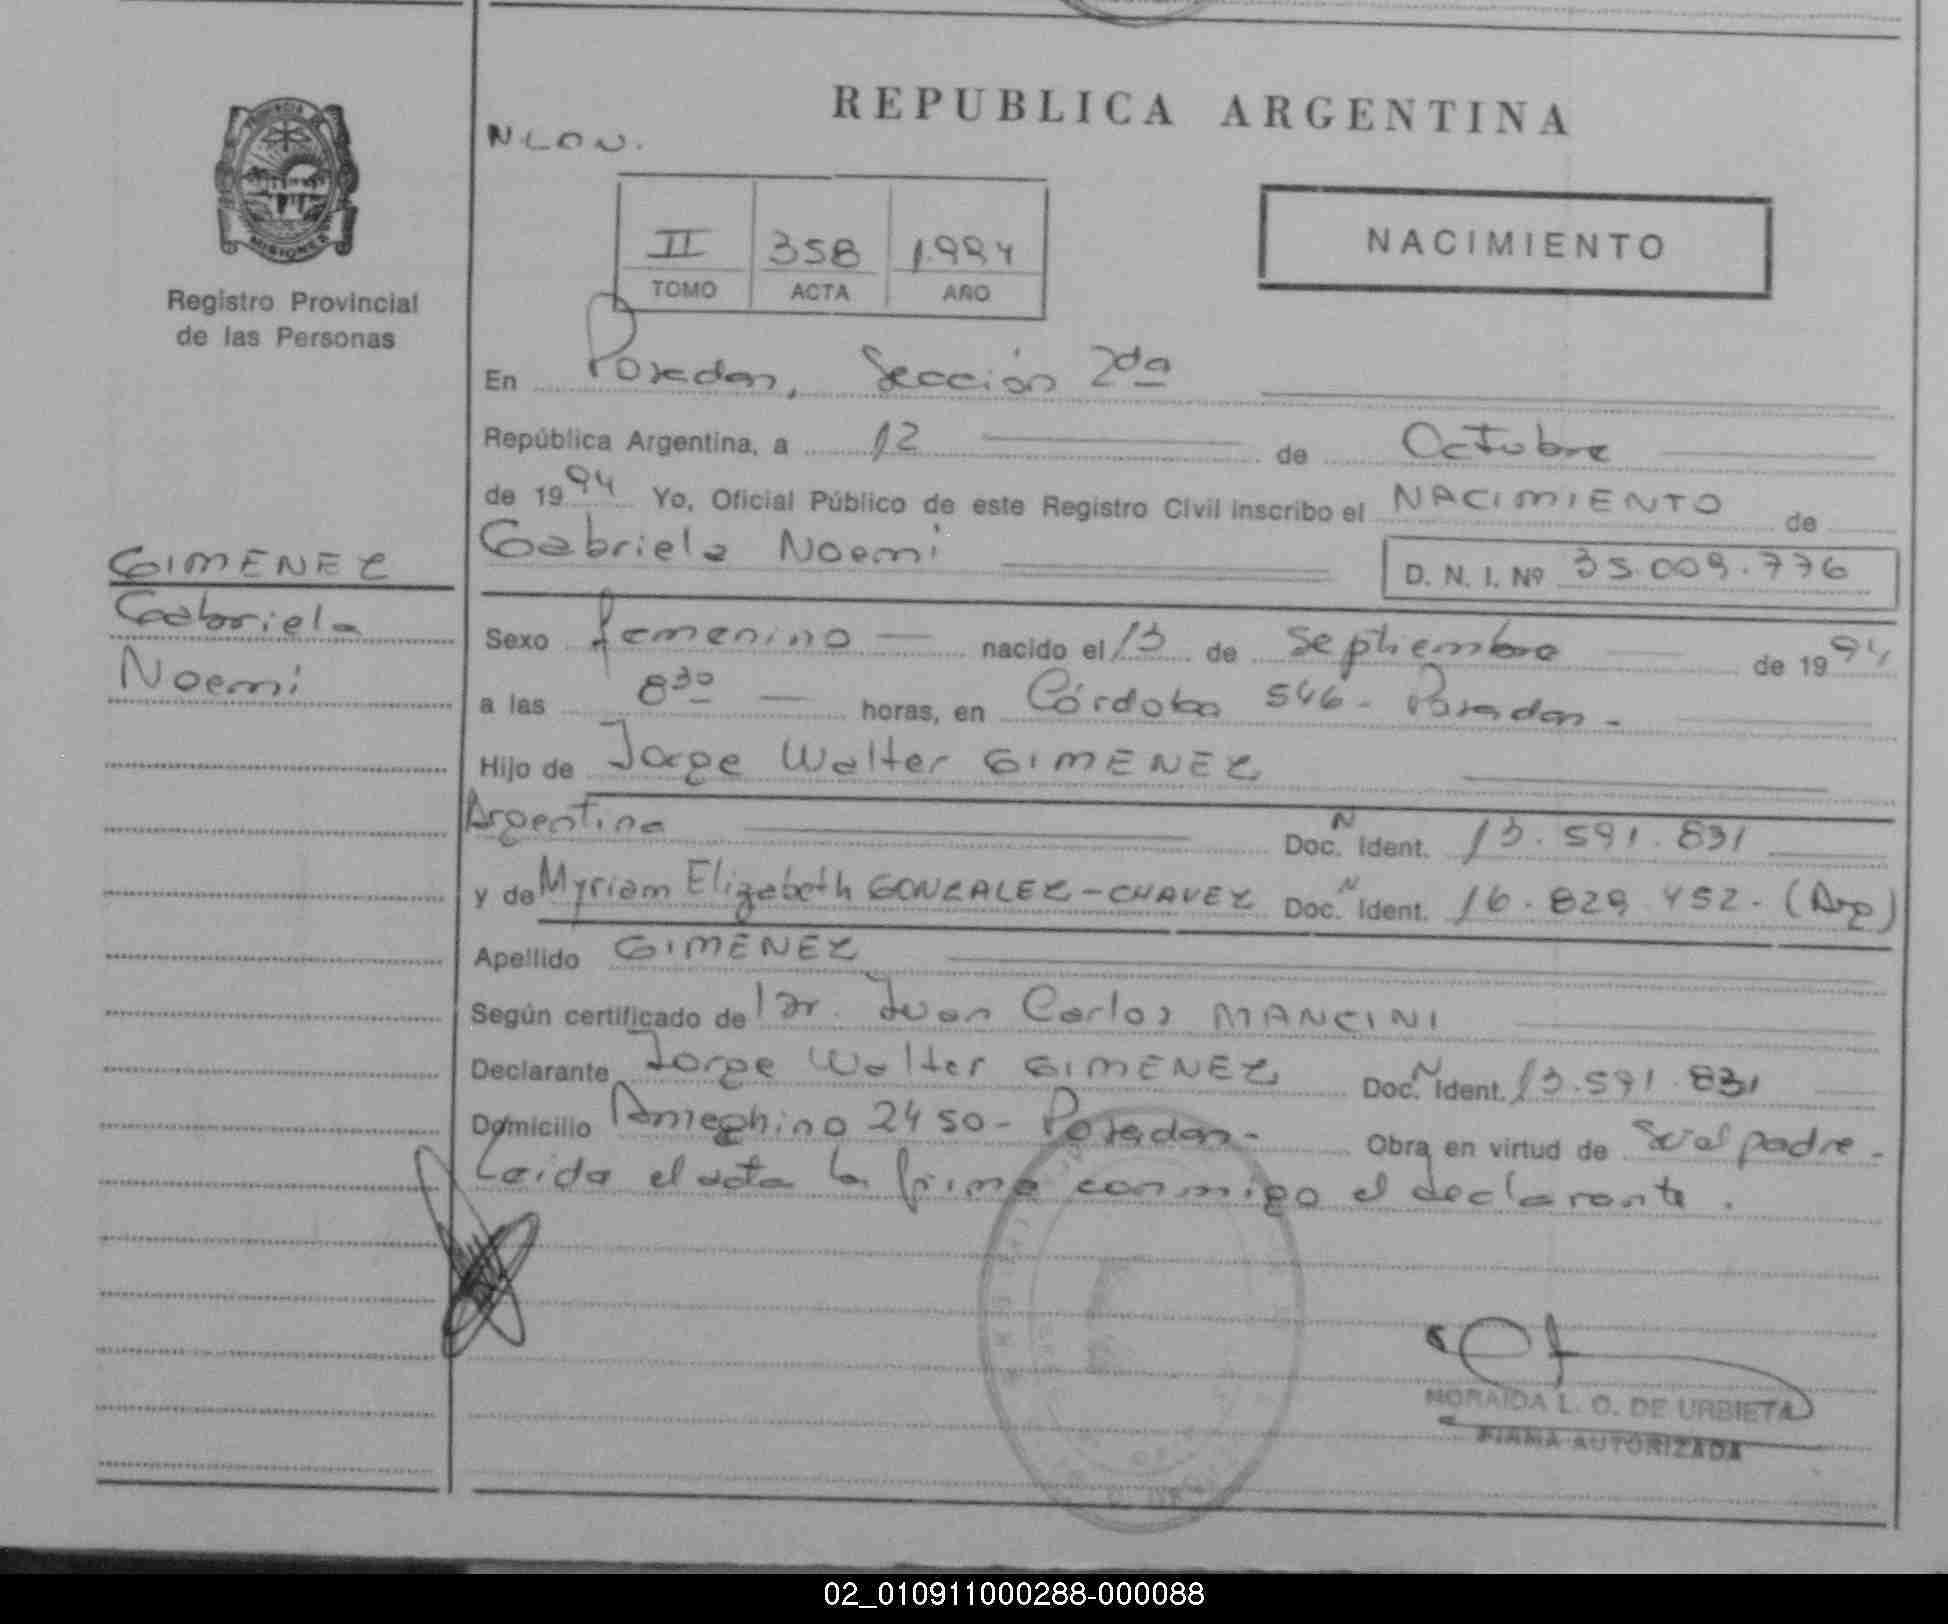 REPUBLICA ARGENTINA
N.L.O.U.
II 358 1.994
TOMO ACTA AÑO
NACIMIENTO
PROVINCIA DE
MISIONES
Registro Provincial
de las Personas
En Posadas, Sección 2da
República Argentina, a 12 de Octubre
de 1994 Yo, Oficial Público de este Registro Civil inscribo el NACIMIENTO de
Gabriela Noemi D. N. I. Nº 35.009.776
GIMENEZ
Gabriela
Noemi
Sexo femenino nacido el 13 de Septiembre de 1994
a las 8 30 horas, en Córdoba 546 - Posadas -
Hijo de Jorge Walter GIMENEZ
Argentino Doc. N Ident. 13.591.831
y de Myriam Elizabeth GONZALEZ - CHAVEZ Doc. N Ident. 16.829.452. (Arg)
Apellido GIMENEZ
Según certificado de Dr. Juan Carlos MANCINI
Declarante Jorge Walter GIMENEZ Doc. N Ident. 13.591.831
Domicilio Ameghino 2450 - Posadas - Obra en virtud de Ser el padre -
Leida el acta la firma conmigo el declarante.
NORAIDA L. O. DE URBIETA
FIRMA AUTORIZADA
02_010911000288-000088